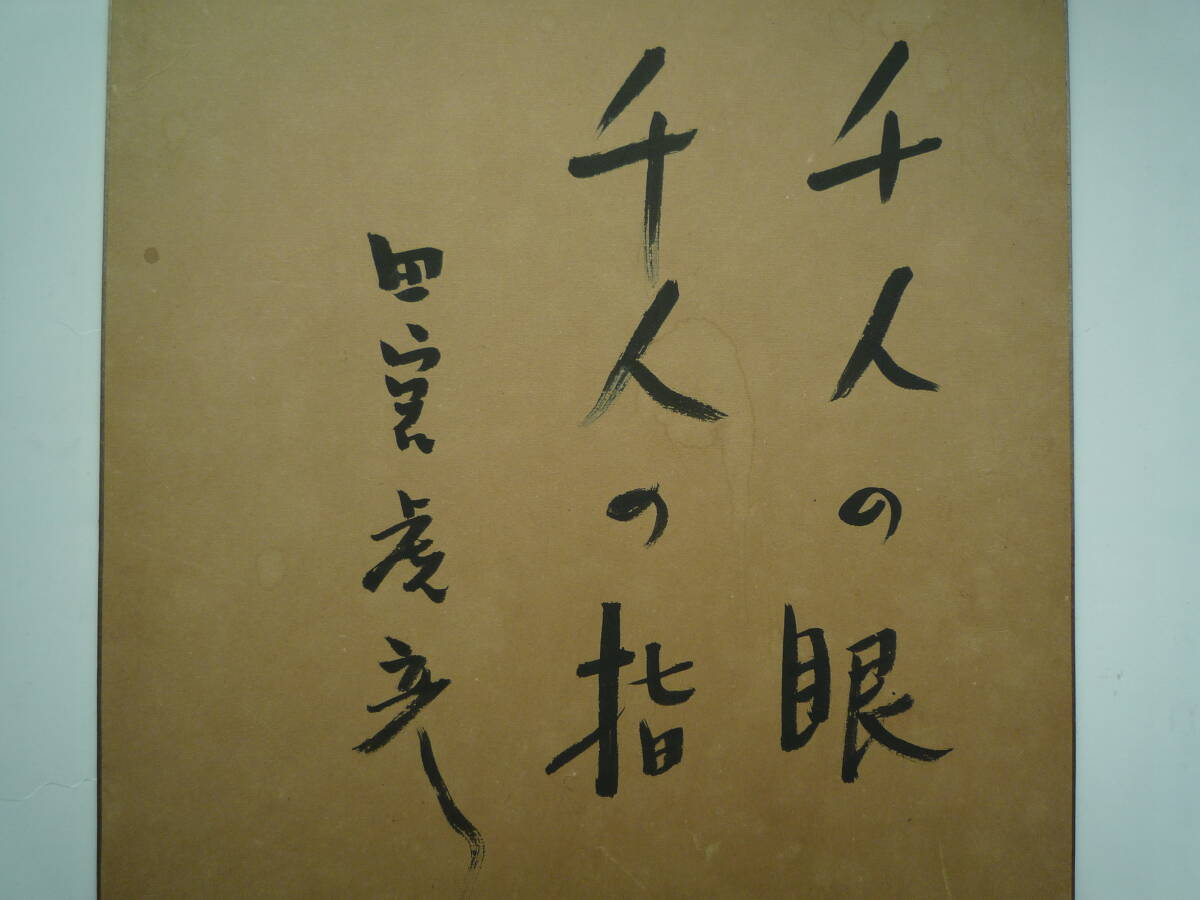 千人の眼
千人の指
田宮虎彦